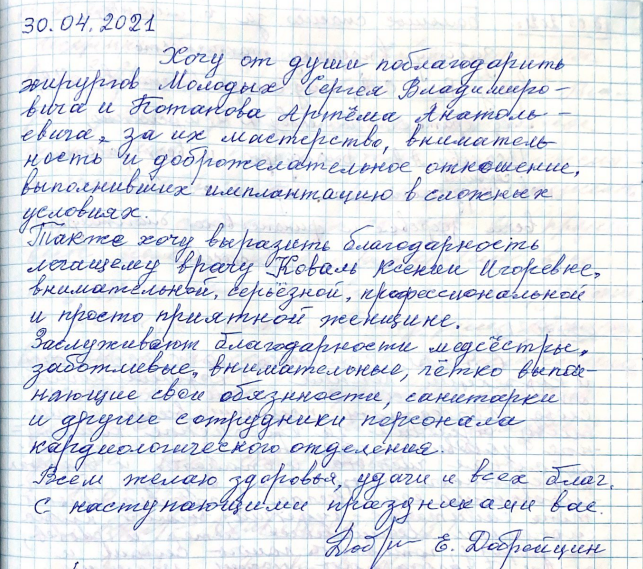 30.04.2021
Хочу от души поблагодарить
хирургов Молодых Сергея Владимиро-
вича и Потапова Артёма Анатоль-
евича, за их мастерство, вниматель-
ность и доброжелательное отношение,
выполнивших имплантацию в сложных
условиях.
Также хочу выразить благодарность
лечащему врачу Коваль Ксении Игоревне,
внимательной, серьёзной, профессиональной
и просто приятной женщине.
Заслуживают благодарности медсёстры,
заботливые, внимательные, чётко выпол-
няющие свои обязнности, санитарки
и другие сотрудники персонала
кардиологического отделения.
Всем желаю здоровья, удачи и всех благ.
С наступающими праздниками вас.
Е. Добрейцин